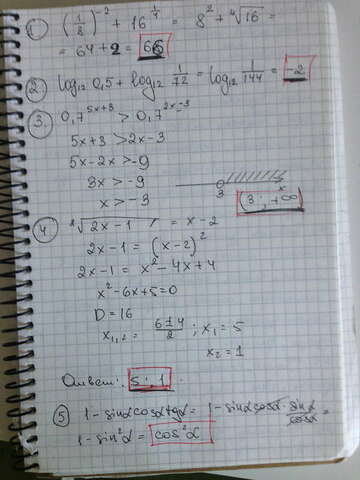 1) (1/8)^-2 + 16^1/4 = 8^2 + ⁴√16 =
= 64 + 2 = 66
2) log₁₂ 0,5 + log₁₂ 1/72 = log₁₂ 1/144 = -2
3. 0,7^5x+3 > 0,7^2x-3
5x+3 > 2x-3
5x-2x > -9
3x > -9
x > -3
3 x
(3; +∞)
4) √2x-1 = x-2
2x-1 = (x-2)^2
2x-1 = x^2-4x+4
x^2-6x+5=0
D=16
x₁,₂ = 6±4/2; x₁=5
x₂=1
Ответ: 5; 1.
5) 1-sinα cosα tgα = 1-sinα cosα · sinα/cosα =
1-sin^2α = cos^2α